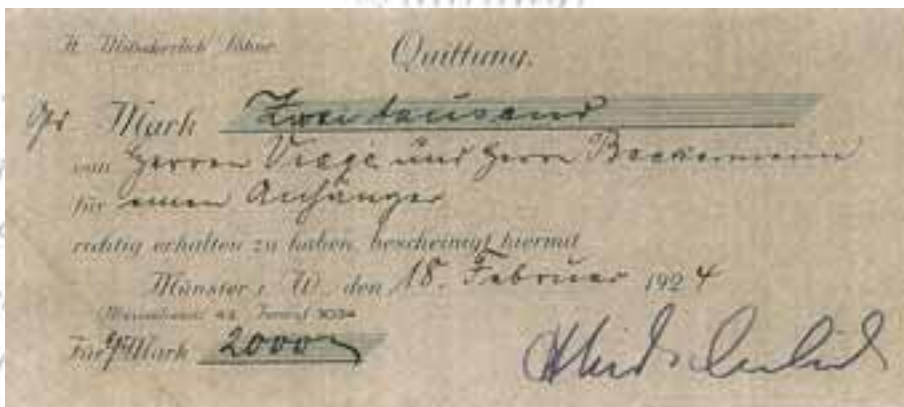 Quittung.
Mark Zwei tausend
von Herren Viege und Herrn Beckermann
für einen Anhänger
richtig erhalten zu haben, bescheinigt hiermit
Münster i. W., den 18. Februar 1924
Für Mark 2000